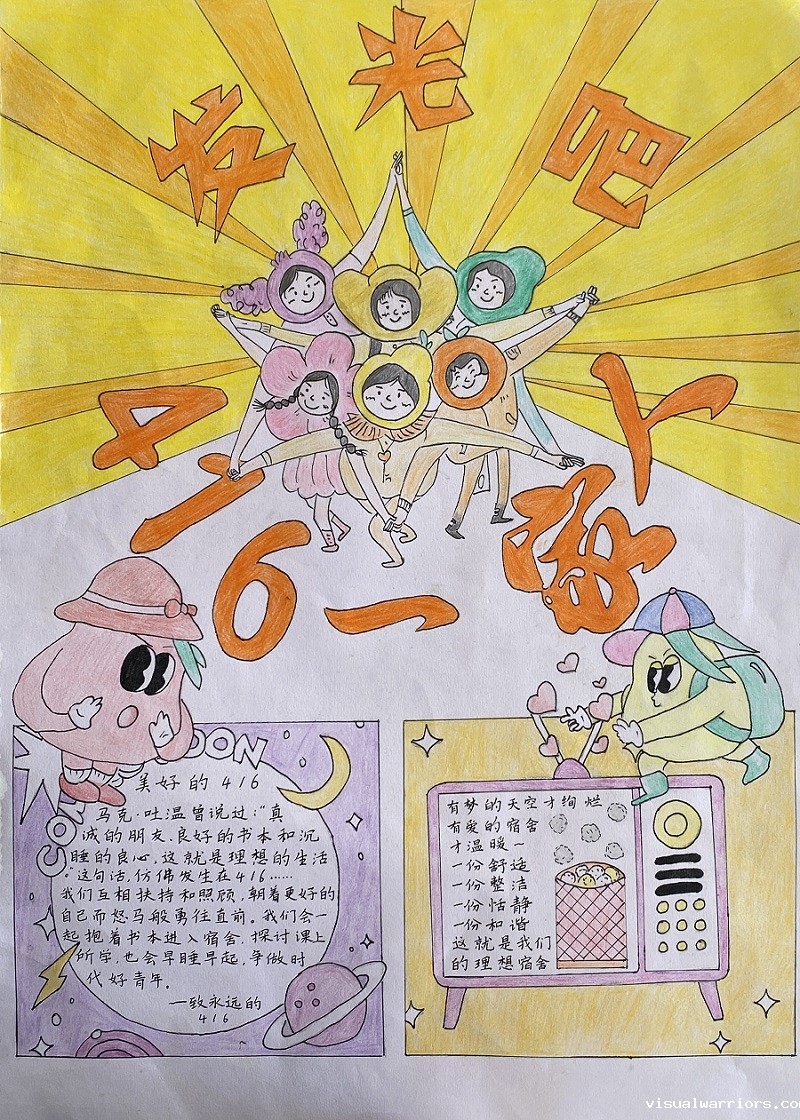 发光吧
416一家人
CO
OON
美好的416
马克·吐温曾说过:“真
诚的朋友、良好的书本和沉
睡的良心,这就是理想的生活
”这句话,仿佛发生在416……
我们互相扶持和照顾,朝着更好的
自己而怒马般勇往直前。我们会一
起抱着书本进入宿舍,探讨课上
所学,也会早睡早起,争做时
代好青年。
一致永远的
416
有梦的天空才绚烂
有爱的宿舍
才温暖~
一份舒适
一份整洁
一份恬静
一份和谐
这就是我们
的理想宿舍
visualwarriors.co